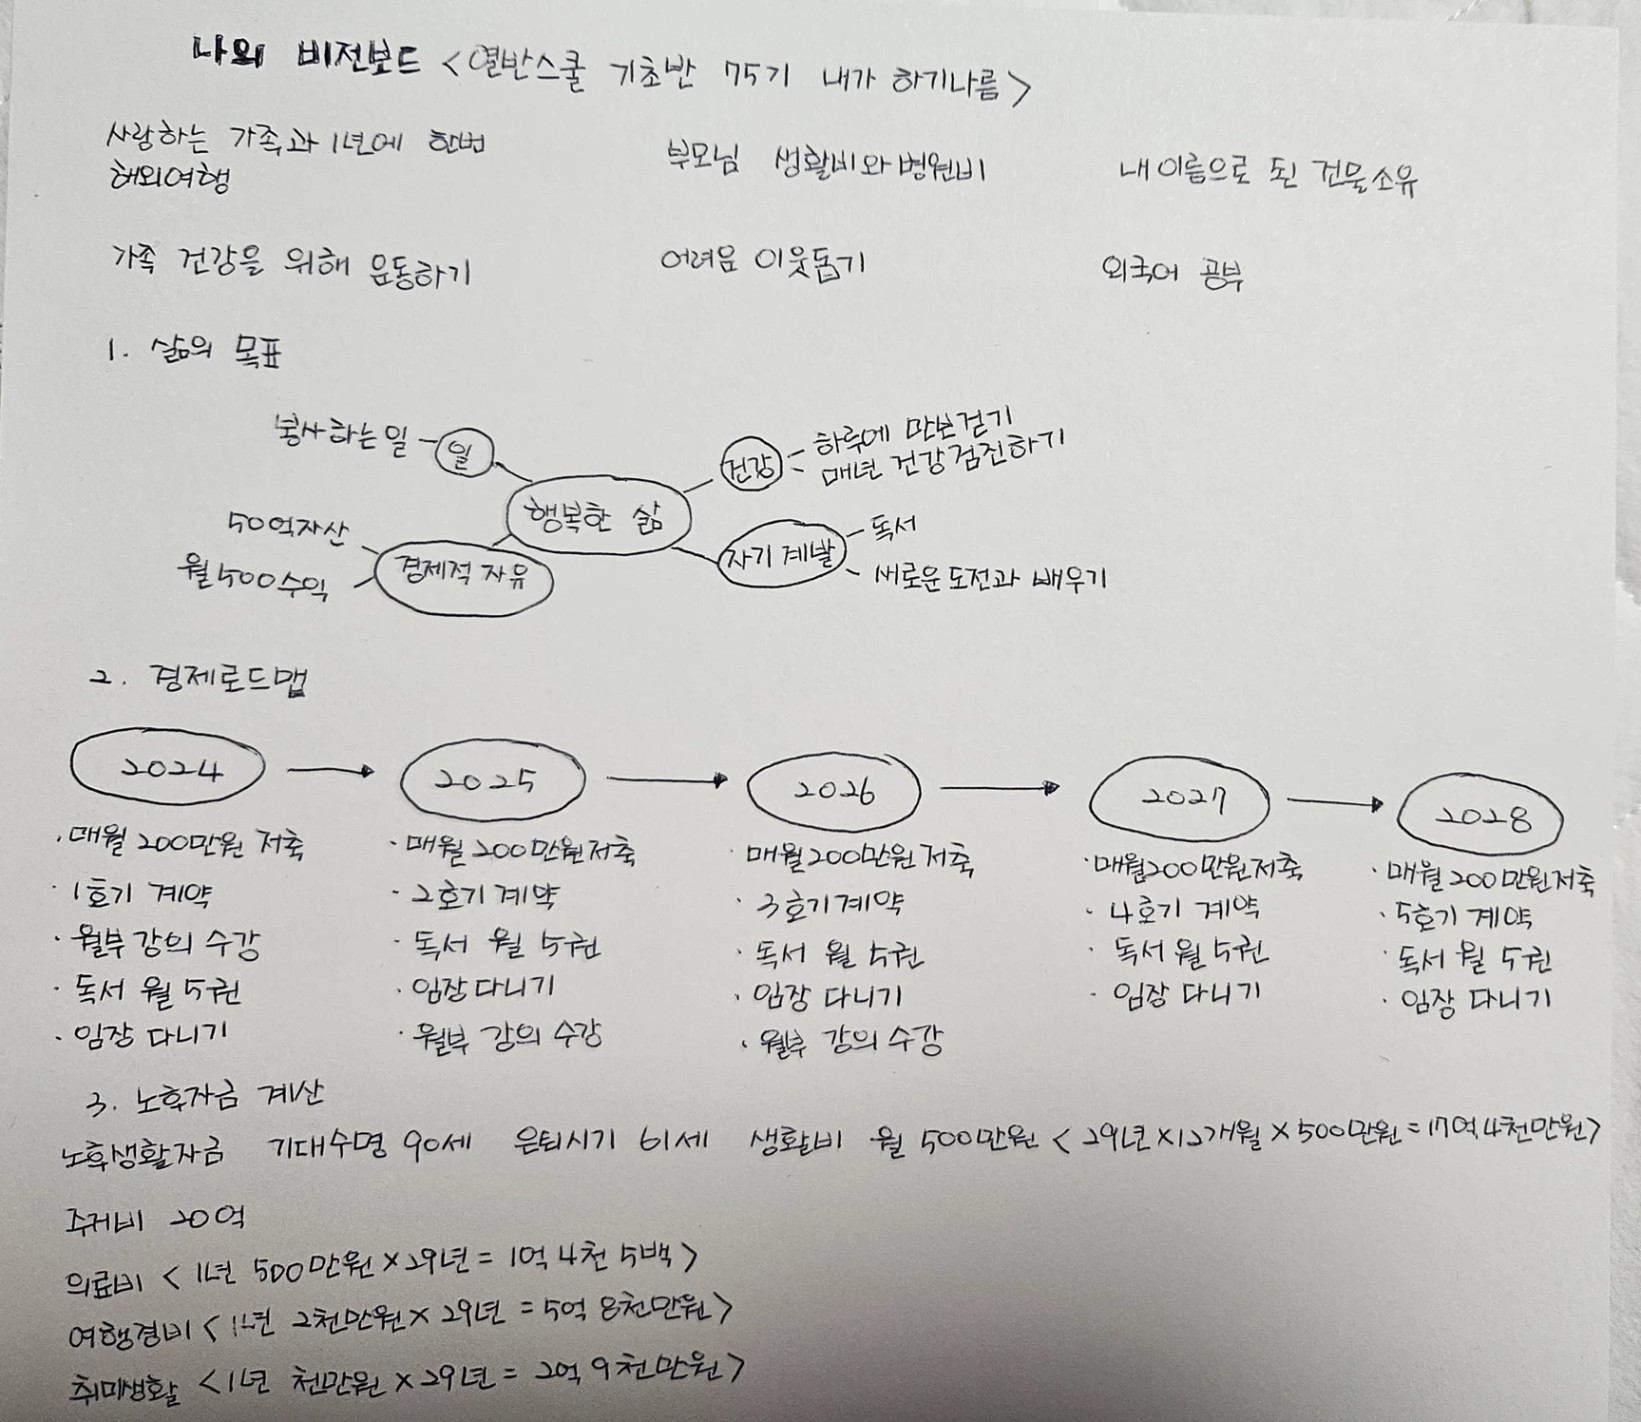 나의 비전보드 <열반스쿨 기초반 75기 내가 하기나름>
사랑하는 가족과 1년에 한번
해외여행
부모님 생활비와 병원비
내 이름으로 된 건물소유
가족 건강을 위해 운동하기
어려움 이웃돕기
외국어 공부
1. 삶의 목표
봉사하는 일
일
건강
하루에 만보걷기
매년 건강검진하기
행복한 삶
50억자산
월500수익
경제적 자유
자기계발
독서
새로운 도전과 배우기
2. 경제로드맵
2024
2025
2026
2027
2028
· 매월 200만원 저축
· 1호기 계약
· 월부 강의 수강
· 독서 월 5권
· 임장 다니기
· 매월 200만원저축
· 2호기 계약
· 독서 월 5권
· 임장 다니기
· 월부 강의 수강
· 매월 200만원 저축
· 3호기 계약
· 독서 월 5권
· 임장 다니기
· 월부 강의 수강
· 매월 200만원 저축
· 4호기 계약
· 독서 월 5권
· 임장 다니기
· 매월 200만원 저축
· 5호기 계약
· 독서 월 5권
· 임장 다니기
3. 노후자금 계산
노후생활자금 기대수명 90세 은퇴시기 61세 생활비 월 500만원 < 29년×12개월×500만원=17억4천만원>
주거비 20억
의료비 < 1년 500만원×29년= 1억 4천 5백 >
여행경비 < 1년 2천만원× 29년 = 5억 8천만원>
취미생활 <1년 천만원 ×29년= 2억 9천만원>